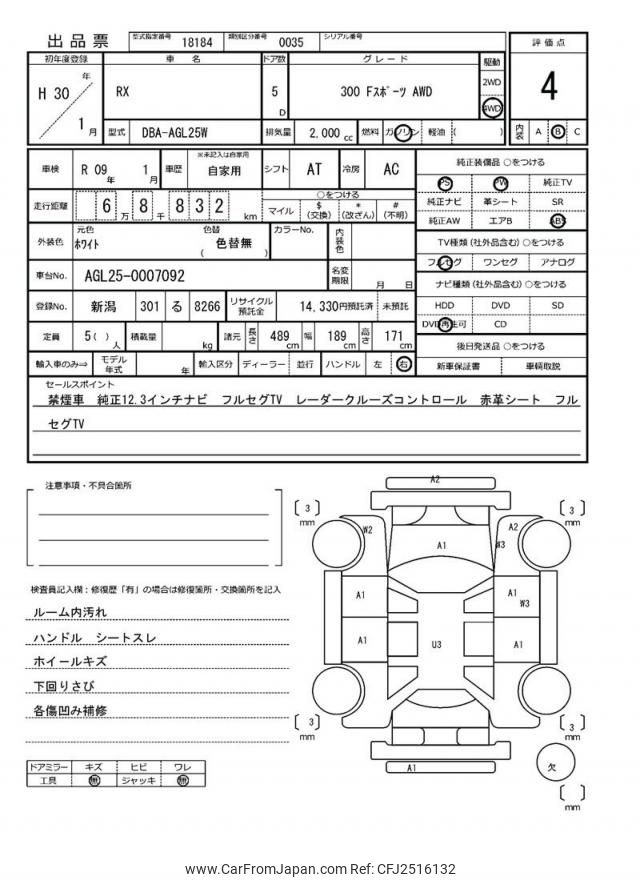 出品票 型式指定番号 18184 類別区分番号 0035 シリアル番号
評価点
4
初年度登録 車名 ドア数 グレード 駆動
H 30 年 1 月 RX 5 D 300 Fスポーツ AWD 2WD 4WD
型式 DBA-AGL25W 排気量 2,000 cc 燃料 ガソリン 軽油 ( ) 内装 A B C
車検 R 09 年 1 月 車歴 ※未記入は自家用 自家用 シフト AT 冷房 AC
走行距離 6 万 8 千 8 3 2 km
○をつける
マイル $(交換) *(改ざん) #(不明)
外装色 元色 ホワイト 色替 ( 色替無 ) カラーNo. 内装色
車台No. AGL25-0007092 名変期限 月 日
登録No. 新潟 301 る 8266 リサイクル預託金 14,330円預託済 未預託
定員 5( ) 人 積載量 kg 諸元 長さ 489 cm 幅 189 cm 高さ 171 cm
輸入車のみ⇒ モデル年式 年 輸入区分 ディーラー 並行 ハンドル 左 右
純正装備品 ○をつける
PS PW 純正TV
純正ナビ 革シート SR
純正AW エアB ABS
TV種類 (社外品含む) ○をつける
フルセグ ワンセグ アナログ
ナビ種類 (社外品含む) ○をつける
HDD DVD SD
DVD再生可 CD
後日発送品 ○をつける
新車保証書 車輌取説
セールスポイント
禁煙車 純正12.3インチナビ フルセグTV レーダークルーズコントロール 赤革シート フル
セグTV
注意事項・不具合箇所
検査員記入欄：修復歴「有」の場合は修復箇所・交換箇所を記入
ルーム内汚れ
ハンドル シートスレ
ホイールキズ
下回りさび
各傷凹み補修
ドアミラー キズ ヒビ ワレ
工具 無 ジャッキ 無
A2
3 mm
3 mm
W2
A2
A1
W3
A1
A1
W3
A1
U3
A1
3 mm
3 mm
A1
欠
mm
www.CarFromJapan.com Ref: CFJ2516132